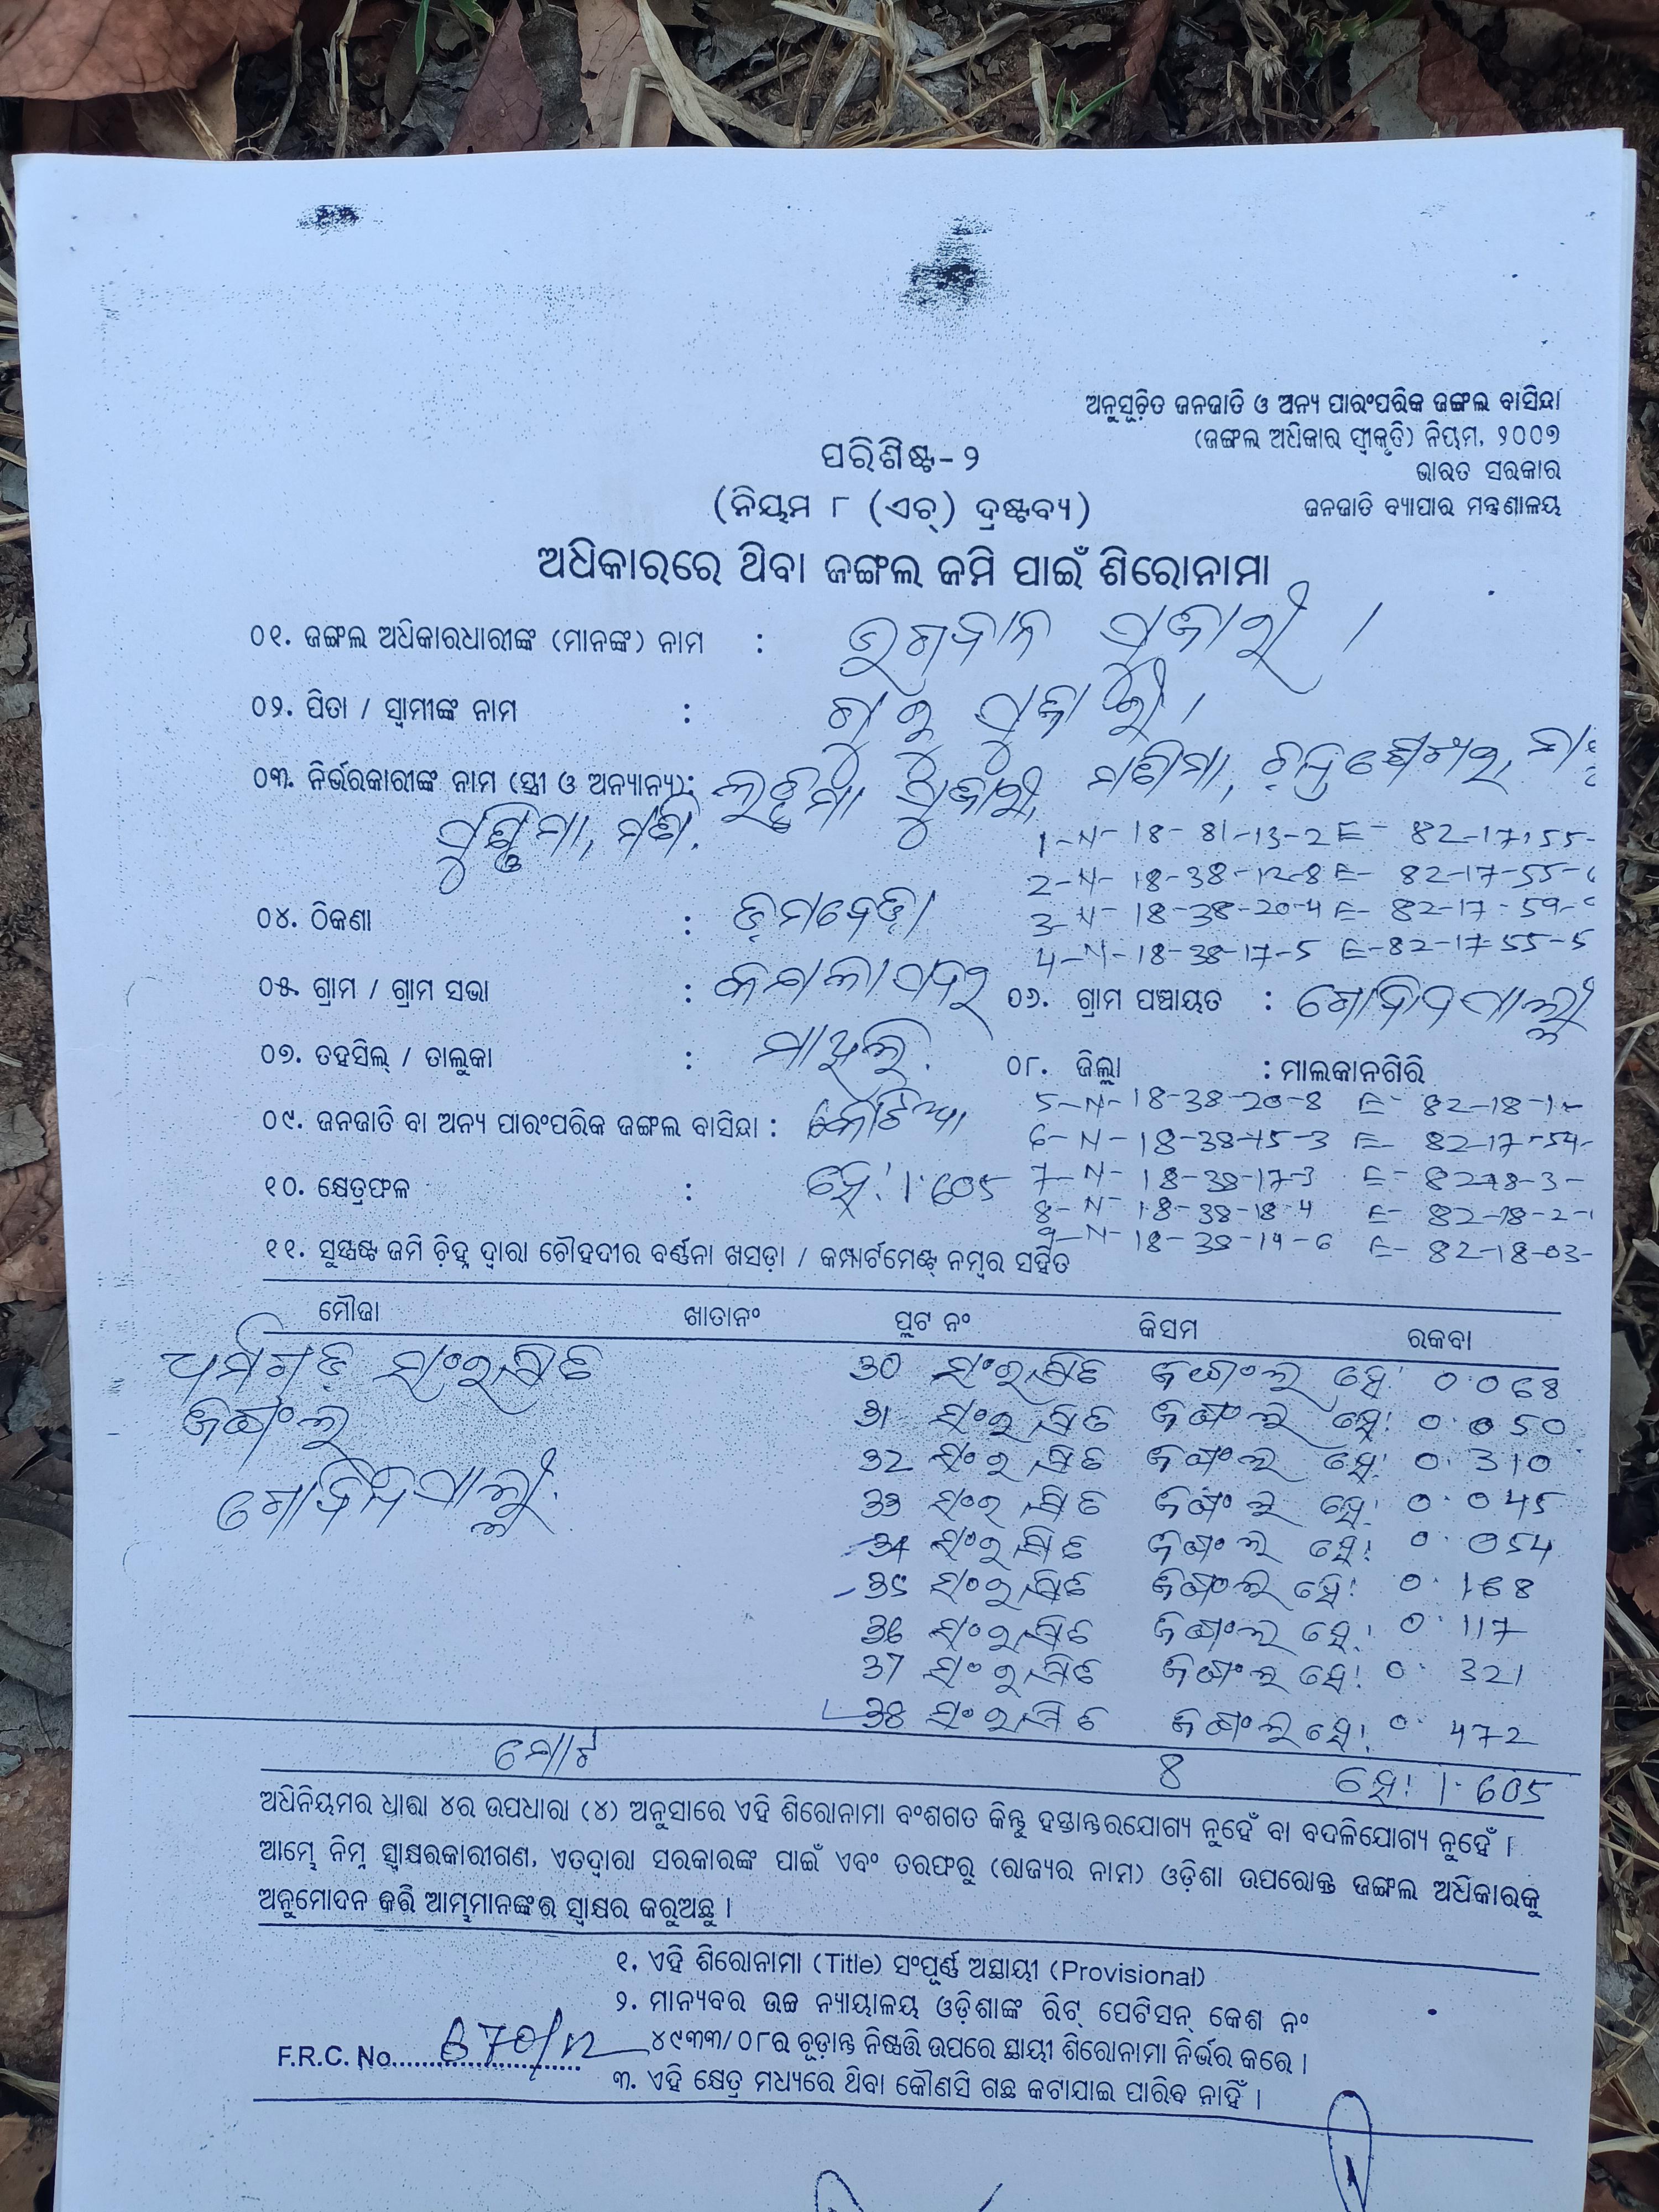 ଅନୁସୂଚିତ ଜନଜାତି ଓ ଅନ୍ୟ ପାରଂପରିକ ଜଙ୍ଗଲ ବାସିନ୍ଦା
(ଜଙ୍ଗଲ ଅଧିକାର ସ୍ୱୀକୃତି) ନିୟମ, ୨୦୦୭
ଭାରତ ସରକାର
ଜନଜାତି ବ୍ୟାପାର ମନ୍ତ୍ରଣାଳୟ
ପରିଶିଷ୍ଟ-୨
(ନିୟମ ୮ (ଏଚ୍) ଦ୍ରଷ୍ଟବ୍ୟ)
ଅଧିକାରରେ ଥିବା ଜଙ୍ଗଲ ଜମି ପାଇଁ ଶିରୋନାମା
୦୧. ଜଙ୍ଗଲ ଅଧିକାରଧାରୀଙ୍କ (ମାନଙ୍କ) ନାମ : ଭଗବାନ ପୂଜାରୀ ।
୦୨. ପିତା / ସ୍ୱାମୀଙ୍କ ନାମ : ଗୁରୁ ପୂଜାରୀ ।
୦୩. ନିର୍ଭରକାରୀଙ୍କ ନାମ (ସ୍ତ୍ରୀ ଓ ଅନ୍ୟାନ୍ୟ): ଲଛମା ପୂଜାରୀ,
1-N- 18- 81-13-2 E- 82-17-55-
2-N- 18-38-12-8 E- 82-17-55-
3-N- 18-38-20-4 E- 82-17-59-
4-N-18-38-17-5 E-82-17-55-5
୦୪. ଠିକଣା :
୦୫. ଗ୍ରାମ / ଗ୍ରାମ ସଭା : ୦୬. ଗ୍ରାମ ପଞ୍ଚାୟତ : ଗୋବିନ୍ଦପାଲ୍ଲୀ
୦୭. ତହସିଲ୍ / ତାଲୁକା : ମାଥିଲି. ୦୮. ଜିଲ୍ଲା : ମାଲକାନଗିରି
5-N-18-38-20-8 E- 82-18-1-
୦୯. ଜନଜାତି ବା ଅନ୍ୟ ପାରଂପରିକ ଜଙ୍ଗଲ ବାସିନ୍ଦା : 6-N-18-38-15-3 E- 82-17-54-
7-N- 18-38-17-3 E- 82-18-3-
୧୦. କ୍ଷେତ୍ରଫଳ : ହେ: 1.605 8-N- 18-38-18-4 E- 82-18-2-
9-N- 18-38-19-6 E- 82-18-03-
୧୧. ସୁସ୍ପଷ୍ଟ ଜମି ଚିହ୍ନ ଦ୍ୱାରା ଚୌହଦୀର ବର୍ଣ୍ଣନା ଖସଡ଼ା / କମ୍ପାର୍ଟମେଣ୍ଟ୍ ନମ୍ବର ସହିତ
ମୌଜା ଖାତାନଂ ପ୍ଲଟ ନଂ କିସମ ରକବା
ଧର୍ମଗଡ଼ ସଂରକ୍ଷିତ 30 ସଂରକ୍ଷିତ ଜଙ୍ଗଲ ହେ: 0.068
ଜଙ୍ଗଲ 31 ସଂରକ୍ଷିତ ଜଙ୍ଗଲ ହେ: 0.050
ଗୋବିନ୍ଦପାଲ୍ଲୀ. 32 ସଂରକ୍ଷିତ ଜଙ୍ଗଲ ହେ: 0.310
33 ସଂରକ୍ଷିତ ଜଙ୍ଗଲ ହେ: 0.045
34 ସଂରକ୍ଷିତ ଜଙ୍ଗଲ ହେ: 0.054
35 ସଂରକ୍ଷିତ ଜଙ୍ଗଲ ହେ: 0.168
36 ସଂରକ୍ଷିତ ଜଙ୍ଗଲ ହେ: 0.117
37 ସଂରକ୍ଷିତ ଜଙ୍ଗଲ ହେ: 0.321
38 ସଂରକ୍ଷିତ ଜଙ୍ଗଲ ହେ: 0.472
ମୋଟ 8 ହେ: 1.605
ଅଧିନିୟମର ଧାରା ୪ର ଉପଧାରା (୪) ଅନୁସାରେ ଏହି ଶିରୋନାମା ବଂଶଗତ କିନ୍ତୁ ହସ୍ତାନ୍ତରଯୋଗ୍ୟ ନୁହେଁ ବା ବଦଳିଯୋଗ୍ୟ ନୁହେଁ ।
ଆମ୍ଭେ ନିମ୍ନ ସ୍ୱାକ୍ଷରକାରୀଗଣ, ଏତଦ୍ୱାରା ସରକାରଙ୍କ ପାଇଁ ଏବଂ ତରଫରୁ (ରାଜ୍ୟର ନାମ) ଓଡ଼ିଶା ଉପରୋକ୍ତ ଜଙ୍ଗଲ ଅଧିକାରକୁ
ଅନୁମୋଦନ କରି ଆମ୍ଭମାନଙ୍କର ସ୍ୱାକ୍ଷର କରୁଅଛୁ ।
୧. ଏହି ଶିରୋନାମା (Title) ସଂପୂର୍ଣ୍ଣ ଅସ୍ଥାୟୀ (Provisional)
୨. ମାନ୍ୟବର ଉଚ୍ଚ ନ୍ୟାୟାଳୟ ଓଡ଼ିଶାଙ୍କ ରିଟ୍ ପେଟିସନ୍ କେଶ ନଂ
୪୯୩୩/୦୮ର ଚୂଡ଼ାନ୍ତ ନିଷ୍ପତ୍ତି ଉପରେ ସ୍ଥାୟୀ ଶିରୋନାମା ନିର୍ଭର କରେ ।
F.R.C. No.
୩. ଏହି କ୍ଷେତ୍ର ମଧ୍ୟରେ ଥିବା କୌଣସି ଗଛ କଟାଯାଇ ପାରିବ ନାହିଁ ।